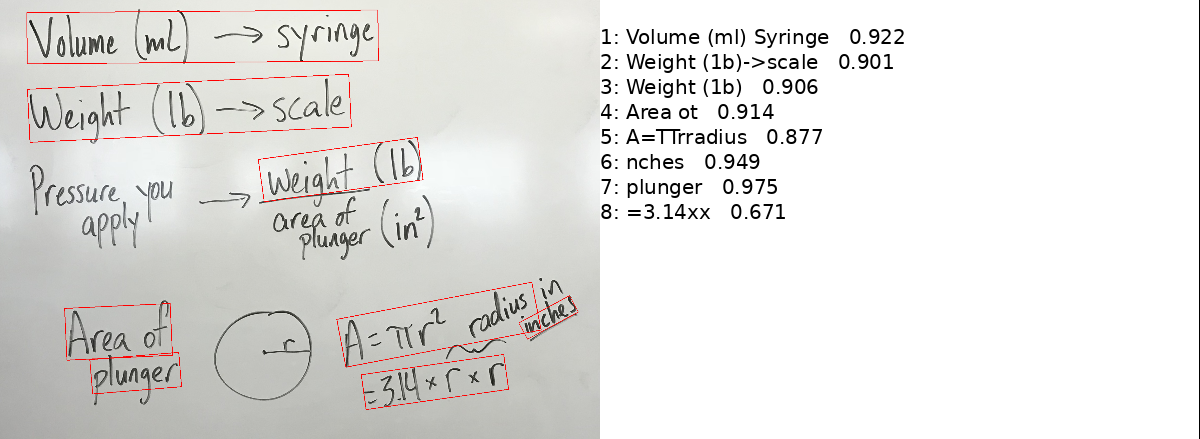 Volume (mL) → syringe
Weight (lb) → scale
Pressure you apply → Weight (lb)
area of plunger (in²)
Area of plunger
r
A = πr² radius in inches
= 3.14 × r × r
1: Volume (ml) Syringe 0.922
2: Weight (1b)->scale 0.901
3: Weight (1b) 0.906
4: Area ot 0.914
5: A=TTrradius 0.877
6: nches 0.949
7: plunger 0.975
8: =3.14xx 0.671